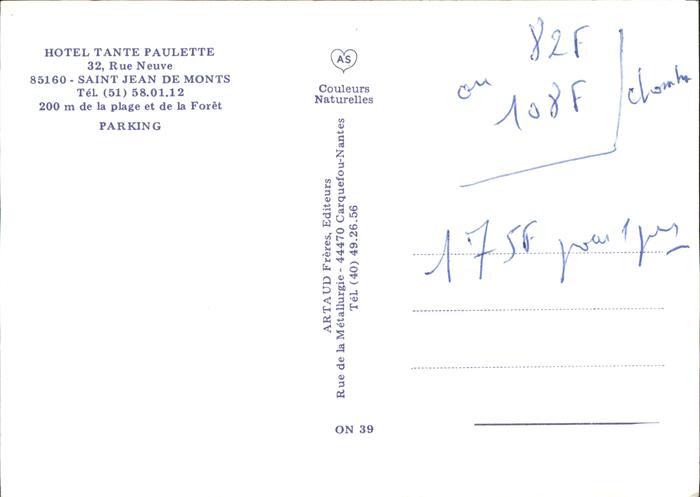 HOTEL TANTE PAULETTE
32, Rue Neuve
85160 - SAINT JEAN DE MONTS
Tél. (51) 58.01.12
200 m de la plage et de la Forêt
PARKING
AS
Couleurs
Naturelles
ARTAUD Frères, Editeurs
Rue de la Métallurgie - 44470 Carquefou-Nantes
Tél. (40) 49.26.56
ON 39
82F
ou
108F
chambre
175F pour 1 pers